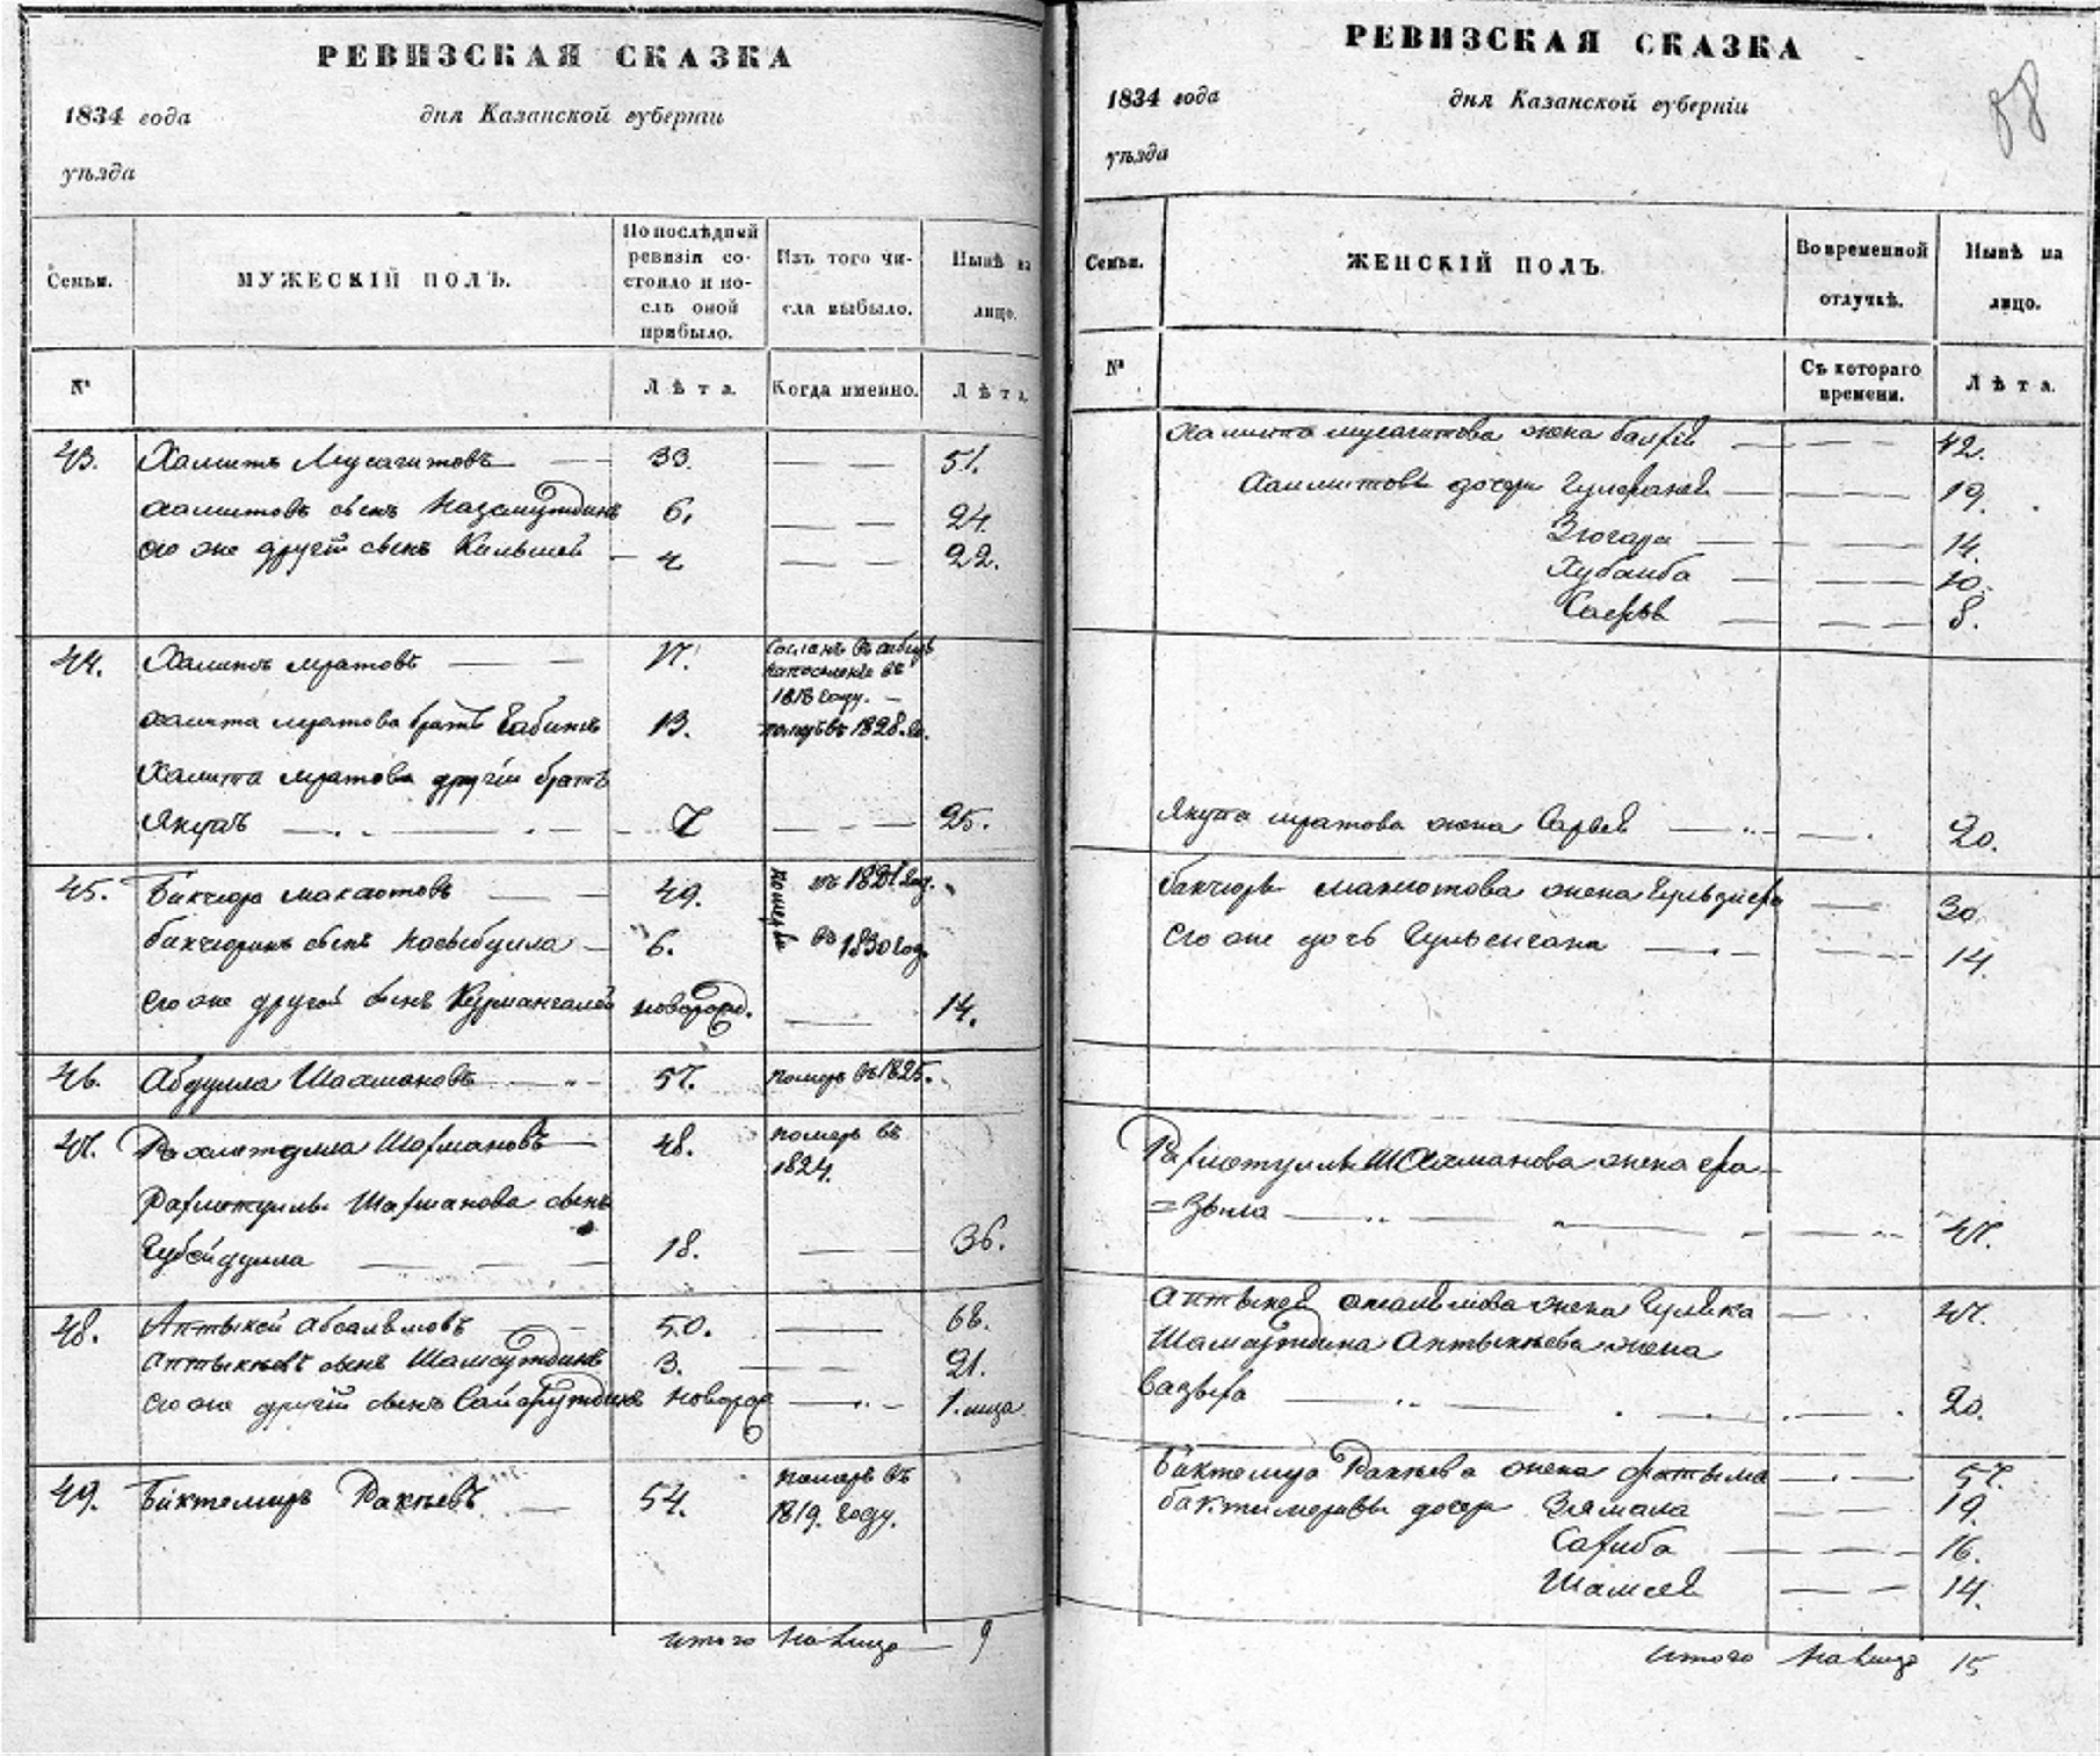 РЕВИЗСКАЯ СКАЗКА
1834 года дня Казанской губерніи
уѣзда
Семьи. МУЖЕСКІЙ ПОЛЪ. По послѣдней ревизіи состояло и послѣ оной прибыло. Изъ того числа выбыло. Нынѣ на лицо.
№ Лѣта. Когда именно. Лѣта.
43. Халитъ Мусагитовъ 33. 51.
Халитовъ сынъ Назамутдинъ 6. 24.
его же другій сынъ 4 22.
44. Халитъ Мратовъ 17. Сосланъ въ сибирь на поселеніе въ 1818 году.
Халита Мратова братъ Габитъ 13. померъ въ 1828. го.
Халита Мратова другій братъ
Якупъ 7 25.
45. Бикчюра Макаютовъ 49. померли въ 1821 год.
бикчюринъ сынъ Насыбулла 6. въ 1830 год.
его же другой сынъ Курмангалей новорожд. 14.
46. Абдулла Шахмановъ 57. померъ въ 1825.
47. Рахматулла Шахмановъ 48. померъ въ 1824.
Рахматуллы Шахманова сынъ
Губейдулла 18. 36.
48. Аптыкей Абсалямовъ 50. 68.
Аптыкѣевъ сынъ Шамсутдинъ 3. 21.
его же другій сынъ Сайфутдинъ новорож 1. мца
49. Биктемиръ Ракѣевъ 54. померъ въ 1819. году.
итого на лицо 9
РЕВИЗСКАЯ СКАЗКА
1834 года дня Казанской губерніи
уѣзда
88
Семьи. ЖЕНСКІЙ ПОЛЪ. Во временной отлучкѣ. Нынѣ на лицо.
№ Съ котораго времени. Лѣта.
Халита Мусагитова жена 42.
Халитовы дочери 19.
Зюгара 14.
Хубаиба 10.
8.
Якупа Мратова жена Сарвей 20.
бикчюры Макаютова жена 30.
Его же дочь 14.
Рахматуллы Шахманова жена Фа-
=зыла 47.
Аптыкея Абсалямова жена Гулика 47.
Шамсутдина Аптыкѣева жена
Вазыфа 20.
Биктемира Ракѣева жена Фатыма 57.
бактимеровы дочери Зямала 19.
Сахиба 16.
Шамсей 14.
Итого на лицо 15